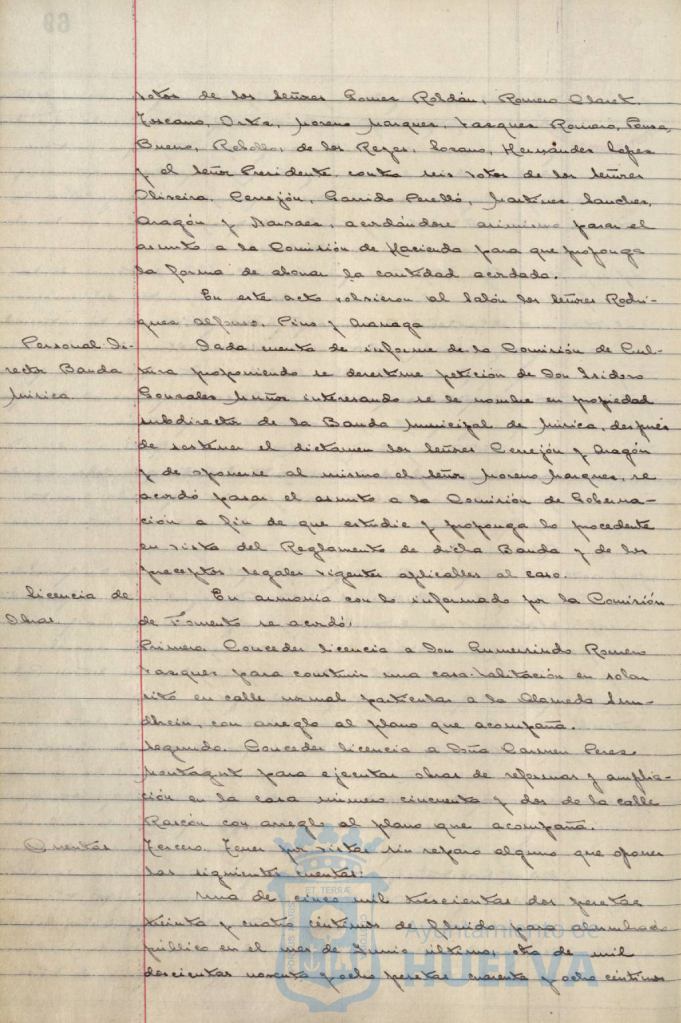 votos de los Señores Gomez Roldán, Romero Claret,
Toscano, Orta, Moreno Marquez, Vazquez Romero, Ponce,
Bueno, Rebollo, de los Reyes, Lozano, Hernández Lopez
y el Señor Presidente, contra seis votos de los Señores
Oliveira, Cerrejón, Garrido Perelló, Martinez Sanchez,
Aragón y Narvaez, acordándose asimismo pasar el
asunto a la Comisión de Hacienda para que proponga
la forma de abonar la cantidad acordada.
En este acto volvieron al Salón los Señores Rodri-
guez Alfonso, Pino y
Personal. Di-
rector Banda
Música.
Dada cuenta de informe de la Comisión de Cul-
tura proponiendo se desestime petición de Don Isidoro
Gonzalez Muñoz interesando se le nombre en propiedad
subdirector de la Banda Municipal de Música, después
de sostener el dictamen los Señores Cerrejón y Aragón
y de oponerse al mismo el Señor Moreno Marquez, se
acordó pasar el asunto a la Comisión de Goberna-
ción a fin de que estudie y proponga lo procedente
en vista del Reglamento de dicha Banda y de los
preceptos legales vigentes aplicables al caso.
Licencia de
Obras.
En armonía con lo informado por la Comisión
de Fomento se acordó:
Primero. Conceder licencia a Don Gumersindo Romero
Vazquez para construir una casa-habitación en solar
sito en calle normal particular a la Alameda Sun-
dheim, con arreglo al plano que acompaña.
Segundo. Conceder licencia a Doña Carmen Perez
Montagut para ejecutar obras de reformas y amplia-
ción en la casa número cincuenta y dos de la calle
Rascón con arreglo al plano que acompaña.
Cuentas
Tercero. Tener por vistas sin reparo alguno que oponer
las siguientes cuentas:
Una de cinco mil trescientas dos pesetas
treinta y cuatro céntimos de fluido para alumbrado
público en el mes de Junio último; otra de mil
doscientas noventa y ocho pesetas cuarenta y ocho céntimos
Ayuntamiento de
HUELVA